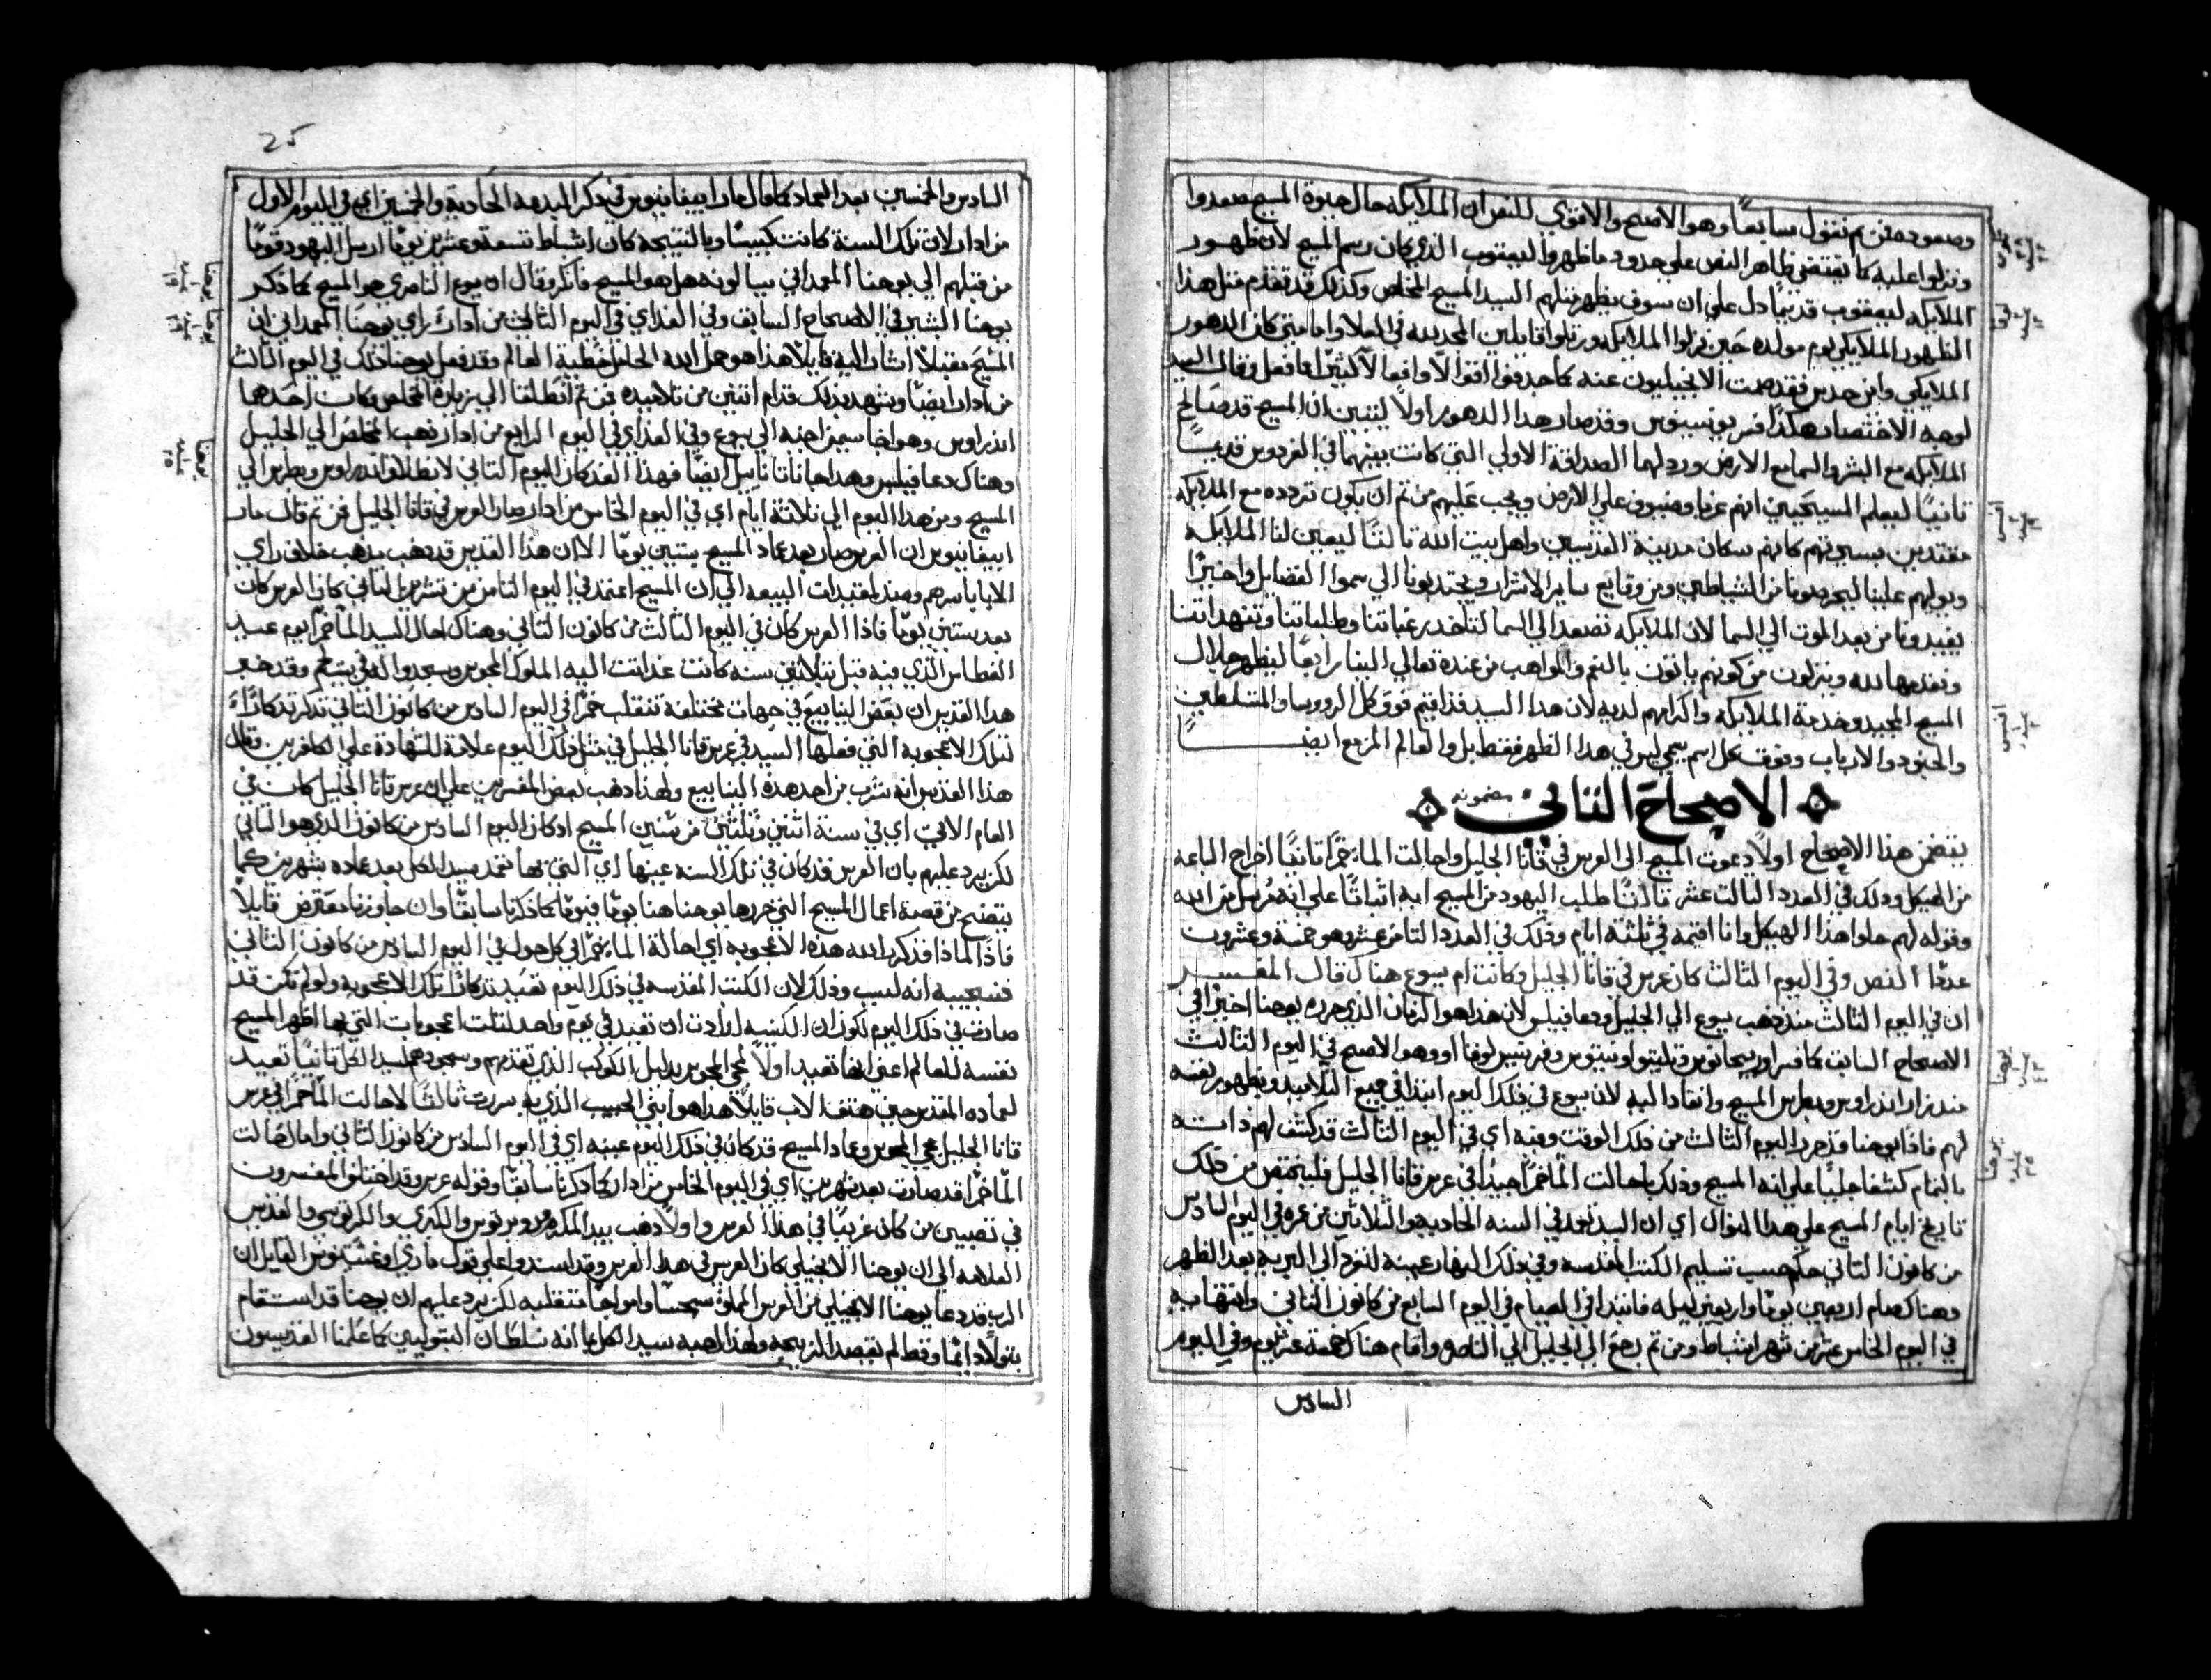 وصعوده فمن ثم نقول سابعًا وهو الاصح والاقوي للنص ان الملايكه حال حيوة المسيح صعدوا
ونزلوا عليه كما يقتضي ظاهر النص علي حدود ما ظهروا ليعقوب الذي كان رسم المسيح لان ظهور
الملايكه ليعقوب قديمًا دل علي ان سوف يظهر مثلهم السيد المسيح المخلص وكذلك قد تقدم مثل هذا
الظهور الملايكي يوم مولده حين نزلوا الملايكه ورتلوا قايلين المجد لله في العلا واما متي كان الظهور
الملايكي واين حدث فقد صمت الانجيليون عنه كما حذفوا اقوالاً وافعالاً كثيرًا مما فعل وقال السيد
لوجه الاختصار هكذا فسر يونسينوس وقد صار هدا الظهور اولاً ليتبين ان المسيح قد صالح
الملايكه مع البشر والسما مع الارض ورد لهما الصداقة الاولي التي كانت بينهما في الفردوس قديمًا
تانيًا ليعلم المسيحيين انهم غربا وضيوف علي الارض ويجب عليهم من تم ان يكون تردده مع الملايكه
مقتدين بسيرتهم كانهم سكان مدينة القديسين واهل بيت الله تالتًا ليعين لنا الملايكه
ويوليهم علينا ليحرصونا من الشياطين ومن وقايع ساير الاشرار ويجتدبونا الي سموا الفضايل واخيرًا
يفيدونا من بعد الموت الي السما لان الملايكه تصعد الي السما لتاخد رغباتنا وطلباتنا وتنهداتنا
وتقدمها لله وينزلون من كونهم ياتون بالنعم والمواهب من عنده تعالي الينا رابعًا ليظهر جلال
المسيح المجيد وخدمة الملايكه واكرامهم لديه لان هدا السيد قد اقيم فوق كل الروسا والمتسلطين
والجنود والارباب وفوق كل اسم يسمي ليس في هدا الظهر فقط بل والعالم المزمع ايضًا
الاصحاح التاني مضمونه
يتضمن هذا الاصحاح اولاً دعوت المسيح الي العرس في قانا الجليل واحالت الما خمرًا تانيًا اخراج الباعه
من الهيكل ودلك في العدد التالت عشر تالتًا طلب اليهود من المسيح اية اثباتًا علي انه مُرسل من الله
وقوله لهم حلوا هذا الهيكل وانا اقيمه في ثلثة ايام وذلك في العدد التامن عشر وهو خمسة وعشرون
عددًا النص وفي اليوم الثالث كان عرس في قانا الجليل وكانت ام يسوع هناك قال المفسر
ان في اليوم الثالث منذ ذهب يسوع الي الجليل ودعا فيلبس لان هذا هو الزمان الذي حرره يوحنا اخيرًا في
الاصحاح السابق كما فسر اوريجانوس وتيلتيوا وتيتوس وفرنسيس لوقا او وهو الاصح في اليوم الثالث
منذ زار اندراوس وبطرس المسيح وانقادا اليه لان يسوع في ذلك اليوم ابتدا في جمع التلاميد وبظهور نفسه
لهم فاذا يوحنا قد حرر اليوم الثالث من ذلك الوقت وفيه اي في اليوم الثالث قد كشف لهم ذاته
بالتمام كشفا جليًا علي انه المسيح وذلك باحالت الما خمرًا جيدًا في عرس قانا الجليل فليفحص من ذلك
تاريخ ايام المسيح علي هدا المنوال اي ان السيد تعمد في السنه الحاديه والثلاثين من عمره في اليوم السادس
من كانون التاني حكم حسب تسليم الكنيسه المقدسه وفي ذلك النهار عينه انفرد الي البريه بعد الظهر
وهناك صام اربعين يومًا واربعين ليله فابتدا في الصيام في اليوم السابع من كانون التاني وانتها به
في اليوم الخامس عشر من شهر اشباط ومن تم رجع الي الجليل الي الناصره واقام هناك خمسة عشر يوم وفي اليوم
السادس
25
السادس والخمسين بعد العماد كما قال مار ابيفانيوس في ذكر البدعه الحادية والخمسين اي في اليوم الاول
من ادار لان تلك السنة كانت كبيسًا وبالنتيجه كان اشباط تسعة وعشرين يومًا ارسل اليهود قومًا
من قبلهم الي يوحنا المعمداني يسالونه هل هو المسيح فانكر وقال ان يسوع الناصري هو المسيح كما ذكر
يوحنا البشير في الاصحاح السابق وفي الغد اي في اليوم الثاني من ادار راي يوحنا المعمداني ان
المسيح مقبلاً اشار اليه قايلاً هذا هو حمل الله الحامل خطية العالم وقد فعل يوحنا ذلك في اليوم الثالث
من ادار ايضًا وشهد بذلك قدام اتنين من تلاميده فمن تم انطلقا الي زيارة المخلص وكان احدهما
اندراوس وهو اخا سمعان جذبه الي يسوع وفي الغد اي في اليوم الرابع من ادار ذهب المخلص الي الجليل
وهناك دعا فيلبس وهدا جا بناتاناييل ايضًا فهذا الغد كان اليوم التاني لانطلاق اندراوس وبطرس الي
المسيح ومن هدا اليوم الي ثلاثة ايام اي في اليوم الخامس من ادار صار العرس في قانا الجليل فمن تم قال مار
ابيفانيوس ان العرس صار بعد عماد المسيح بستين يومًا الا ان هذا القديس قد ذهب مذهب خلاف راي
الابا باسرهم وضد لمعتقدات البيعه الي ان المسيح اعتمد في اليوم التامن من تشرين التاني كان العرس كان
بعد ستين يومًا فاذا العرس كان في اليوم الثالث من كانون التاني وهناك احال السيد الما خمرًا يوم عيد
الغطاس الذي فيه قبل ثلاثين سنه كانت عدات اليه الملوك المجوس وسجدوا له في بيت لحم وقد خبر
هدا القديس ان بعض الينابيع في جهات مختلفة تنقلب خمرًا في اليوم السادس من كانون التاني تذكرتد كارًا
لتلك الاعجوبه التي فعلها السيد في عرس قانا الجليل في مثل ذلك اليوم علامة للشهادة علي الكافرين وقال
هذا القديس انه شرب من احد هذه الينابيع ولهذا ذهب بعض المفسرين علي ان عرس قانا الجليل كان في
العام الاتي اي في سنة اثنين وثلثين من سنين المسيح او كان اليوم السادس من كانون الدي هو التاني
لكن يرد عليهم بان العرس قد كان في تلك السنه عينها اي التي بها تعمد سيد الكل بعد عماده بشهرين كما
يتضح من قصة اعمال المسيح التي حررها يوحنا هنا يومًا فيومًا كما ذكرنا سابقًا وان حاوزنا معترض قايلاً
فاذا لماذا تذكر الله هذه الاعجوبه اي احالة الما خمرًا في كل حول في اليوم السادس من كانون التاني
فنجيبه انه لسبب وذلك لان الكنيسة المقدسه في ذلك اليوم تعيد تذكار تلك الاعجوبه ولو لم تكن قد
صارت في ذلك اليوم لكون ان الكنيسه ارادت ان تعيد في يوم واحد لثلث اعجوبات التي بها اظهر المسيح
نفسه للعالم اعني انها تعيد اولاً لمجي المجوس بدليل الكوكب الذي تقدمهم وسجودهم لسيد الكل تانيًا تعيد
لعماده المقدس حين هتف الاب قايلاً هذا هو ابني الحبيب الذي به سررت ثالثًا لاحالت الما خمرًا في عرس
قانا الجليل مجي المجوس وعماد المسيح قد كان في ذلك اليوم عينه اي في اليوم السادس من كانون التاني واما احالت
الما خمرًا قد صارت بعد شهرين اي في اليوم الخامس من ادار كما ذكرنا سابقًا وقوله عرس وقد اختلف المفسرون
في تعيين من كان عريسًا في هذا العرس واولاً ذهب بيدا المكرم وروبرتوس والكبري والكرتوسي والقديس
العلامه الي ان يوحنا الانجيلي كان العريس في هدا العرس وقد استندوا علي قول ماري اوغسطينوس القايل ان
الرب قد دعا يوحنا الانجيلي من العرس المملوة سجسًا وامواجًا متقلبه لكن يرد عليهم ان يوحنا قد استقام
بتولاً دايمًا وقط لم يقصد الزيجه ولهذا احبه سيد الكل بما انه سلطان البتوليين كما علمنا القديسون